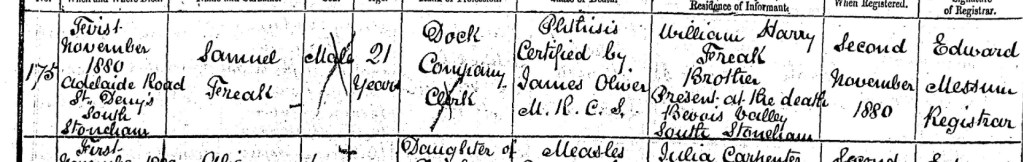 When Registered.
Residence of Informant
of Registrar.
175
First
November
1880
Adelaide Road
St. Denys
South
Stoneham
Samuel
Freak
Male
21
Years
Dock
Company
Clerk
Phthisis
Certified by
James Oliver
M. R. C. S.
William Harry
Freak
Brother
Present at the death
Bevois Valley
South Stoneham
Second
November
1880
Edward
Messum
Registrar
First
Daughter of
Measles
Julia Carpenter
Second